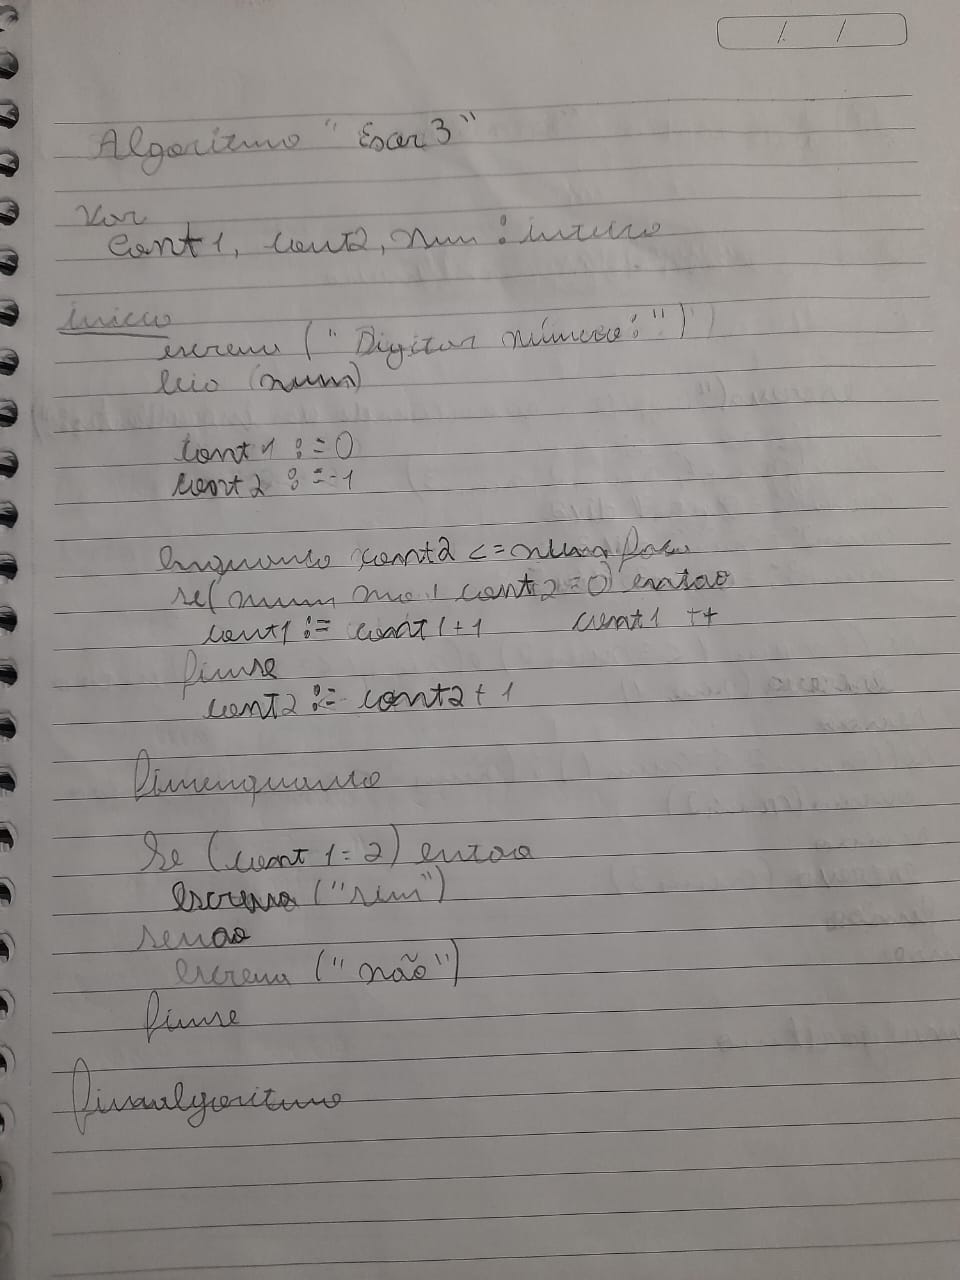 Algoritmo "Exer 3"
Var
Cont 1, cont2, num : inteiro
inicio
escreva ("Digitar número:")
leia (num)
cont 1 := 0
cont 2 := 1
enquanto cont2 <= num faca
se( num mod cont 2 = 0) entao
cont1 := cont 1 + 1 cont 1 ++
fimse
cont2 := cont2 + 1
fimenquanto
Se (cont 1 = 2) entao
escreva ("sim")
senao
escreva ("não")
fimse
fimalgoritmo